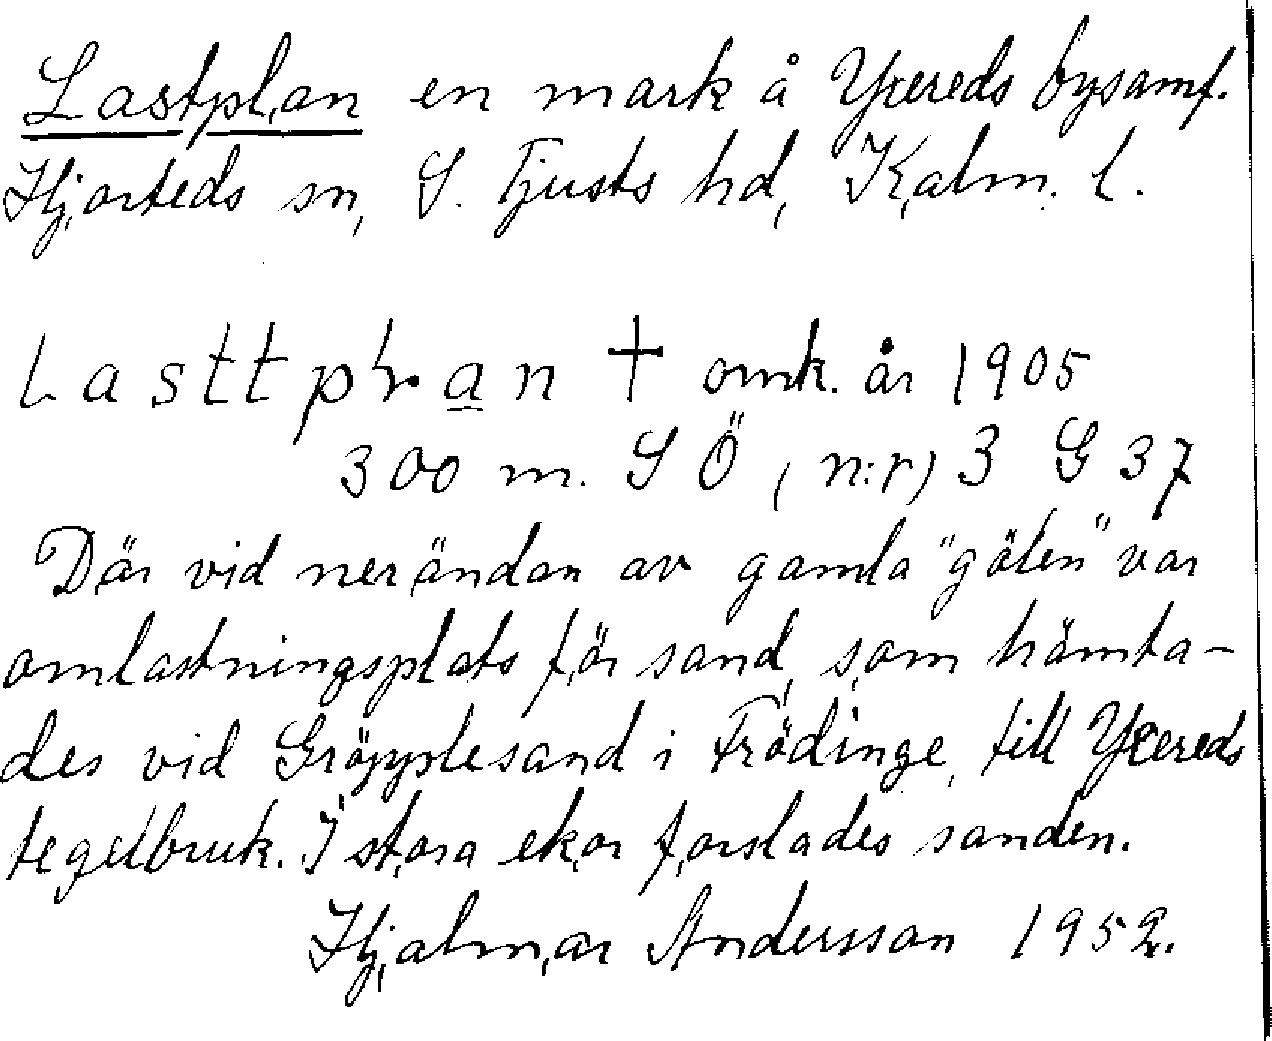 Lastplan en mark å Yxereds bysamf.
Hjorteds sn, S. Tjusts hd, Kalm. l.
Lasttplan † omk. år 1905
300 m. S Ö, (n:r) 3 G 37
Där vid nerändan av gamla "göten" var
omlastningsplats för sand, som hämta-
des vid Gröpplesand i Frödinge, till Yxereds
tegelbruk. I stora ekor forslades sanden.
Hjalmar Andersson 1952.